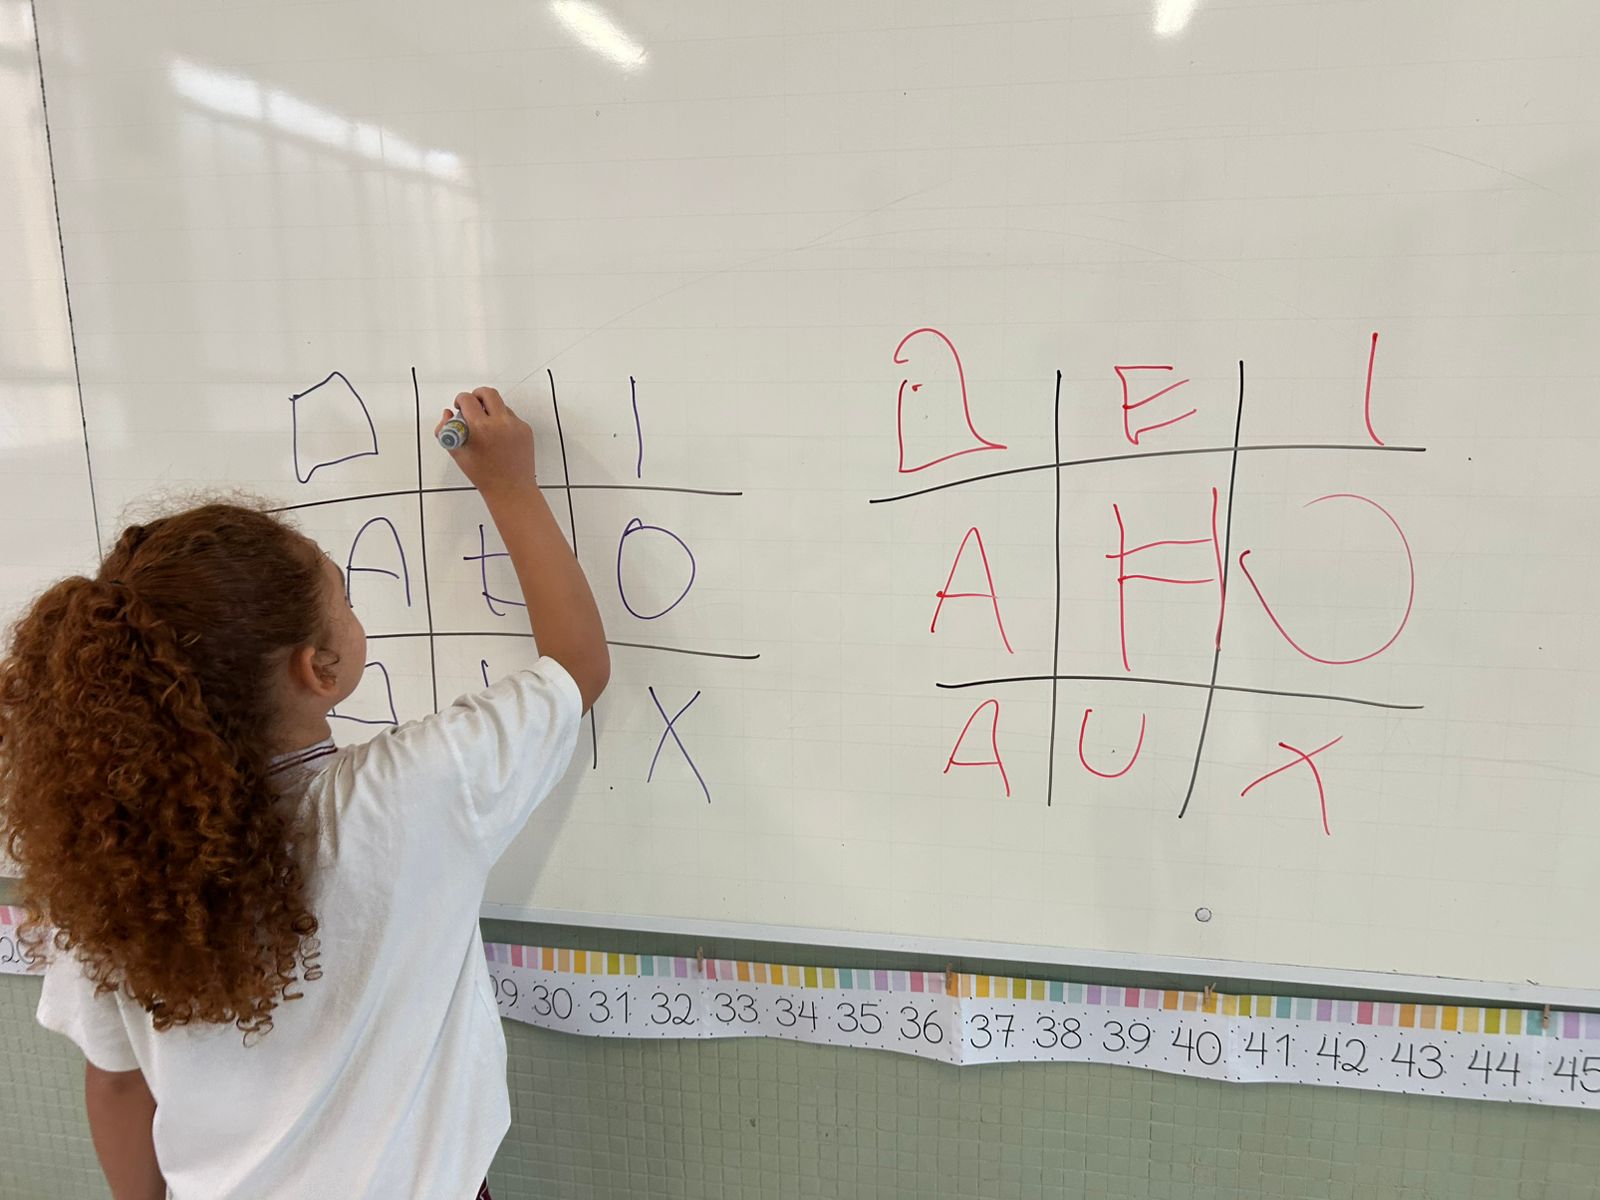 I
A O
X
E I
A H O
A U X
29 30 31 32 33 34 35 36 37 38 39 40 41 42 43 44 45